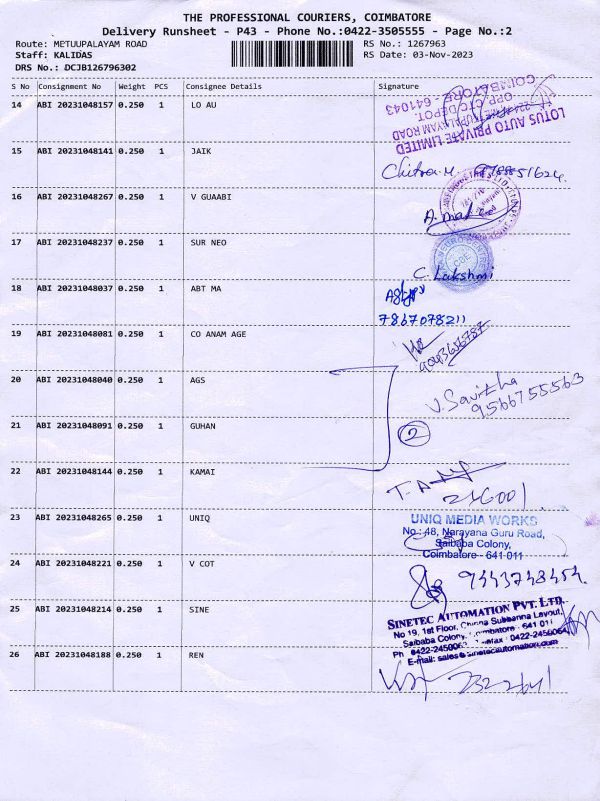 THE PROFESSIONAL COURIERS, COIMBATORE
Delivery Runsheet - P43 - Phone No.:0422-3505555 - Page No.:2
Route: METUUPALAYAM ROAD
Staff: KALIDAS
DRS No.: DCJB126796302
RS No.: 1267963
RS Date: 03-Nov-2023
S No Consignment No Weight PCS Consignee Details Signature
14 ABI 20231048157 0.250 1 LO AU
LOTUS AUTO PRIVATE LIMITED
OPP. CTC DEPOT,
COIMBATORE - 641043
15 ABI 20231048141 0.250 1 JAIK
Chitra.M.
16 ABI 20231048267 0.250 1 V GUAABI
17 ABI 20231048237 0.250 1 SUR NEO
C. Lakshmi
18 ABI 20231048037 0.250 1 ABT MA
7867078211
19 ABI 20231048081 0.250 1 CO ANAM AGE
20 ABI 20231048040 0.250 1 AGS
V. Savitha
9566755563
21 ABI 20231048091 0.250 1 GUHAN
2
22 ABI 20231048144 0.250 1 KAMAI
23 ABI 20231048265 0.250 1 UNIQ
UNIQ MEDIA WORKS
No.:48, Narayana Guru Road,
Saibaba Colony,
Coimbatore - 641 011
24 ABI 20231048221 0.250 1 V COT
25 ABI 20231048214 0.250 1 SINE
SINETEC AUTOMATION PVT. LTD.
No 19, 1st Floor, Layout,
Saibaba Colony, Coimbatore - 641 011
E-mail: sales@sinetecautomation.com
26 ABI 20231048188 0.250 1 REN